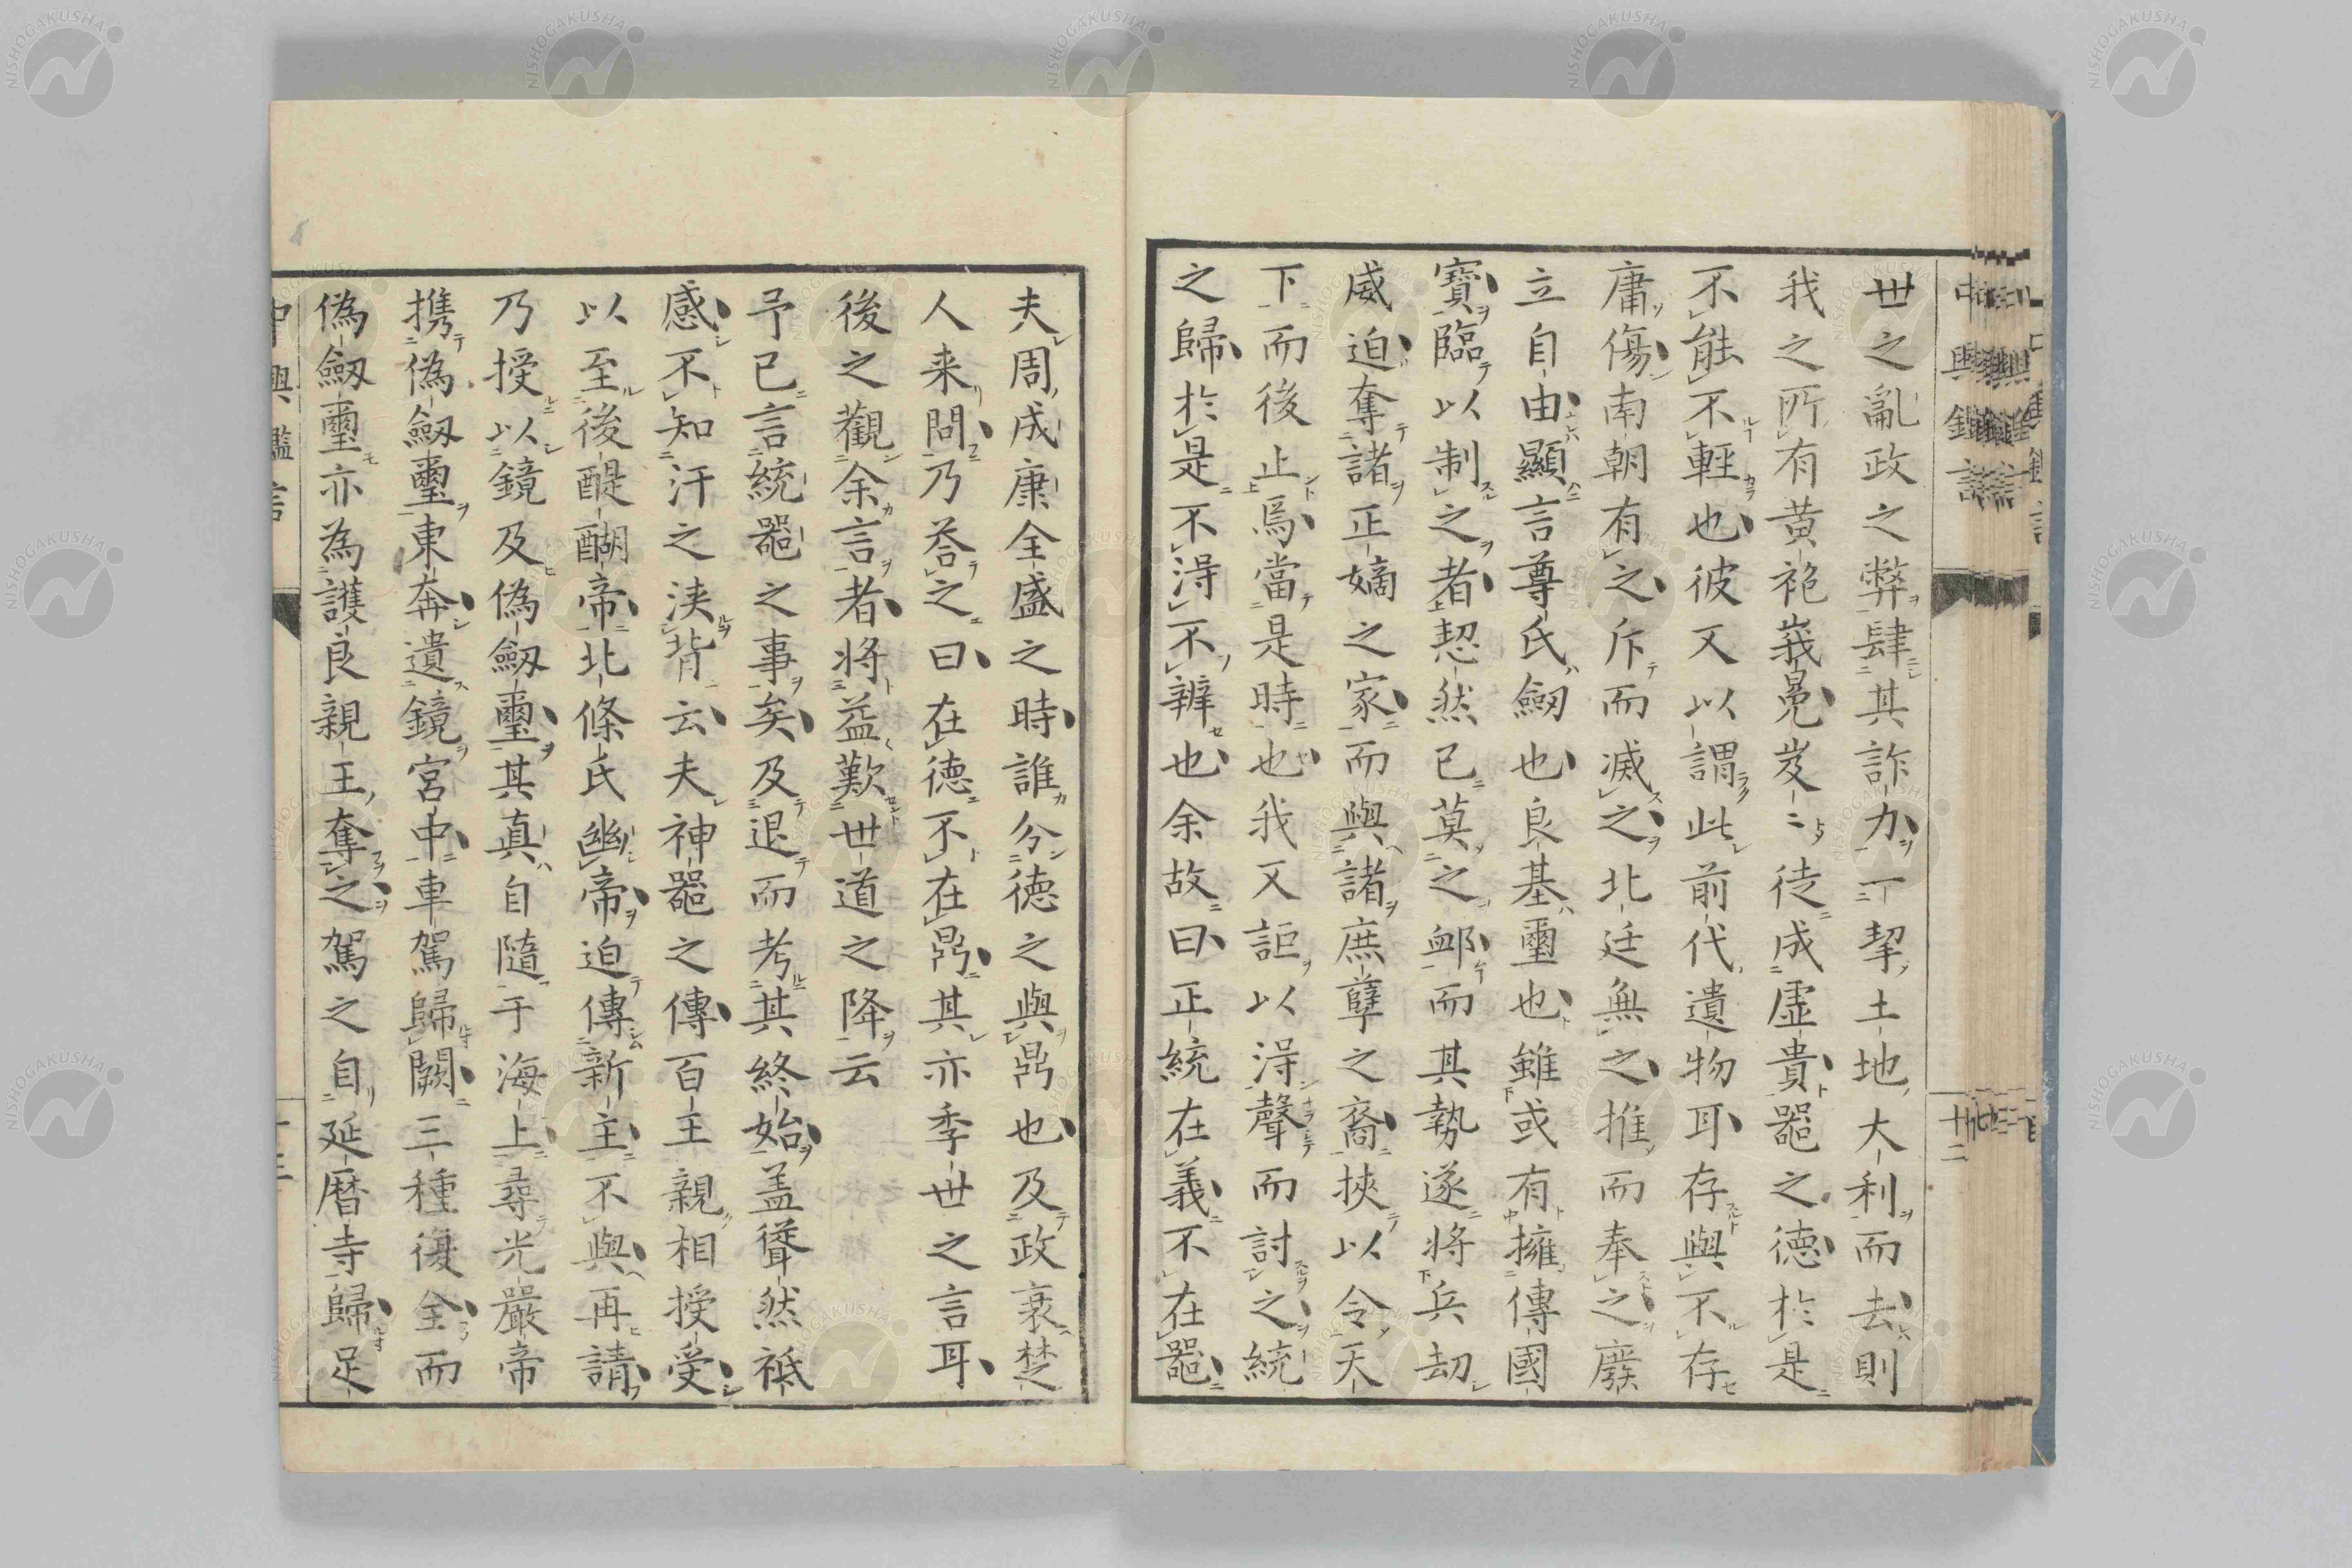 世之亂政之弊肆其詐力一挈土地大利而去則
我之所有黄袍峩冕岌〻徒成虚貴噐之徳於是
不能不輕也彼又以謂此前代遺物耳存與不存
庸傷南朝有之斥而滅之北廷無之推而奉之廢
立自由顯言尊氏劔也良基璽也雖或有擁傳國
寶臨以制之者恝然已莫之䘏而其勢遂將兵刧
威迫奪諸正嫡之家而與諸庶孽之裔挾以令天
下而後止焉當是時也我又詎以淂聲而討之統
之歸於是不淂不辨也余故曰正統在義不在噐
夫周成康全盛之時誰分徳之與鼎也及政衰楚
人来問乃荅之曰在徳不在鼎其亦季世之言耳
後之觀余言者將益歎世道之降云
予已言統噐之事矣及退而考其終始盖聳然祗
感不知汗之浹背云夫神噐之傳百王親相授受
以至後醍醐帝北條氏幽帝迫傳新主不與再請
乃授以鏡及偽劔璽其真自隨于海上尋光嚴帝
携偽劔璽東奔遺鏡宮中車駕歸闕三種復全而
偽劔璽亦為護良親王奪之駕之自延暦寺歸足
中興鑑言
十二